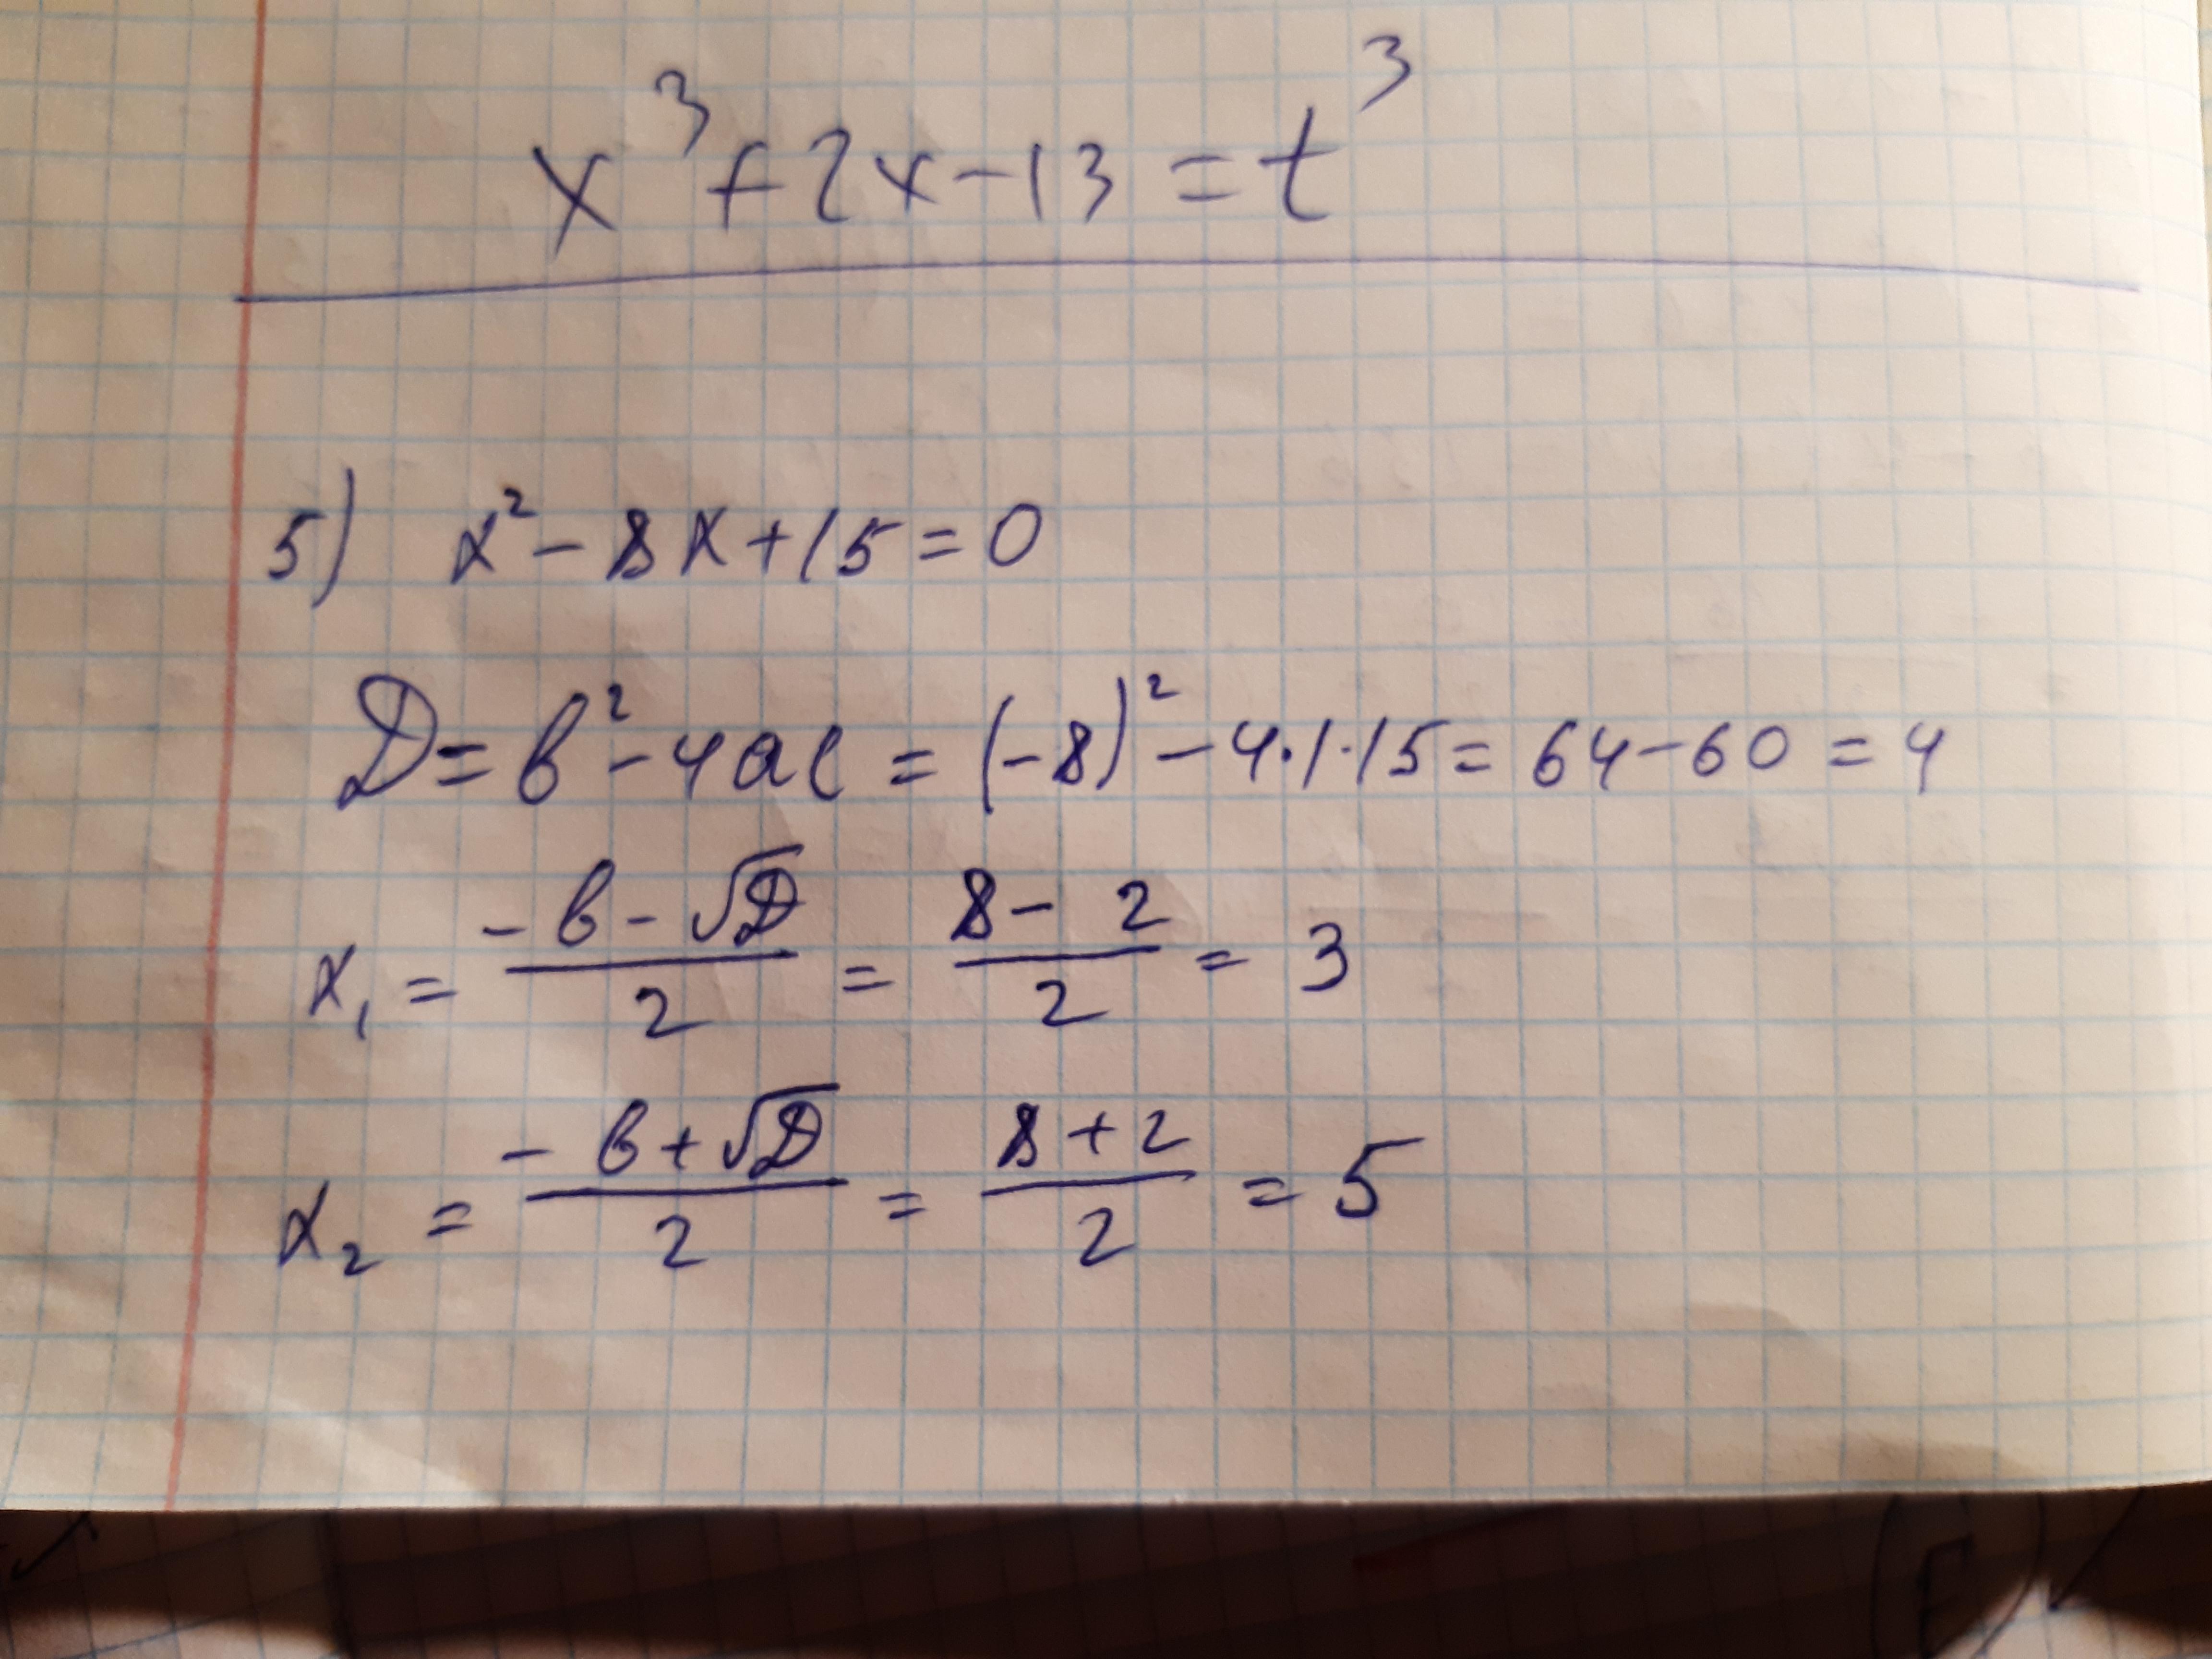 x³+2x-13=t³
5) x²-8x+15=0
D=b²-4ac=(-8)²-4·1·15=64-60=4
x₁=(-b-√D)/2=(8-2)/2=3
x₂=(-b+√D)/2=(8+2)/2=5